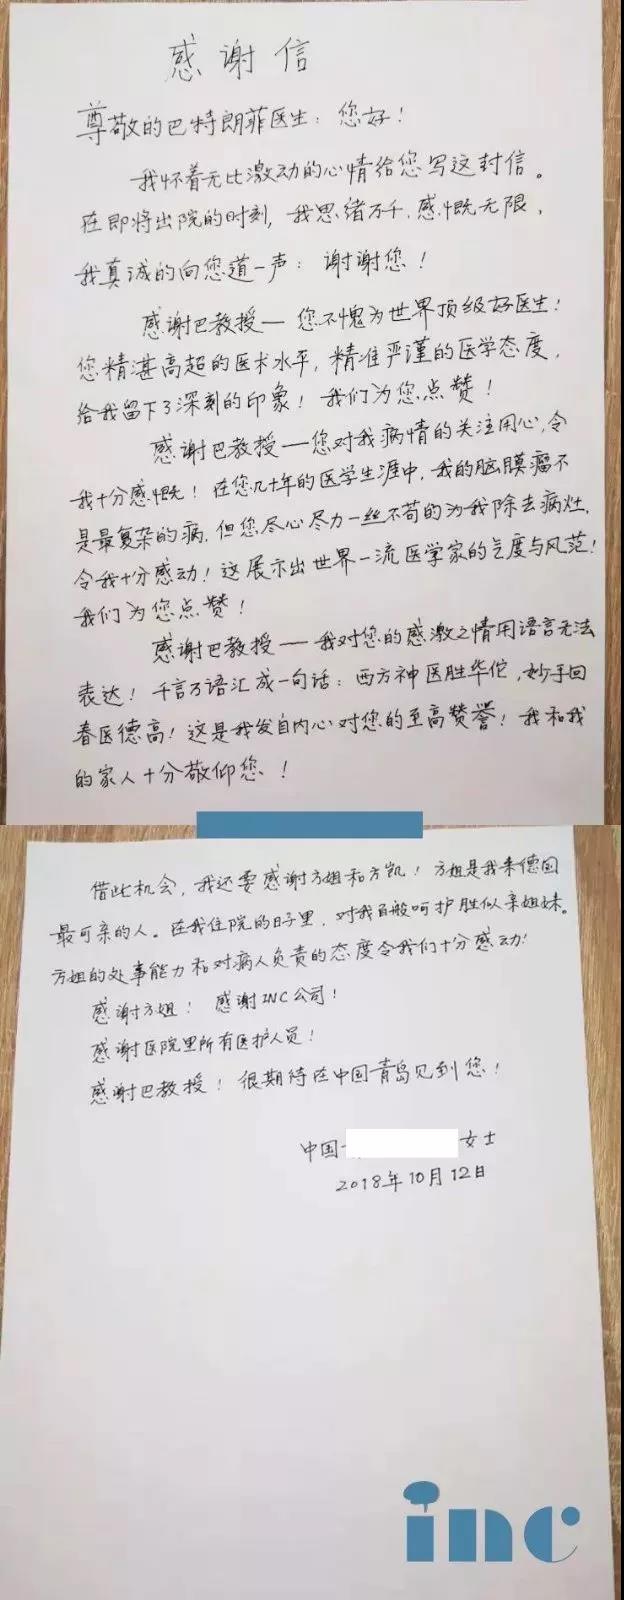 感谢信
尊敬的巴特朗菲医生：您好！
我怀着无比激动的心情给您写这封信。
在即将出院的时刻，我思绪万千，感慨无限，
我真诚的向您道一声：谢谢您！
感谢巴教授—您不愧为世界顶级好医生！
您精湛高超的医术水平，精准严谨的医学态度，
给我留下了深刻的印象！我们为您点赞！
感谢巴教授—您对我病情的关注用心，令
我十分感慨！在您几十年的医学生涯中，我的脑膜瘤不
是最复杂的病，但您尽心尽力一丝不苟的为我除去病灶，
令我十分感动！这展示出世界一流医学家的气度与风范！
我们为您点赞！
感谢巴教授—我对您的感激之情用语言无法
表达！千言万语汇成一句话：西方神医胜华佗，妙手回
春医德高！这是我发自内心对您的至高赞誉！我和我
的家人十分敬仰您！
借此机会，我还要感谢方姐和方凯！方姐是我来德国
最可亲的人。在我住院的日子里，对我百般呵护胜似亲姐妹。
方姐的处事能力和对病人负责的态度令我们十分感动！
感谢方姐！感谢INC公司！
感谢医院里所有医护人员！
感谢巴教授！很期待在中国青岛见到您！
中国 女士
2018年10月12日
inc